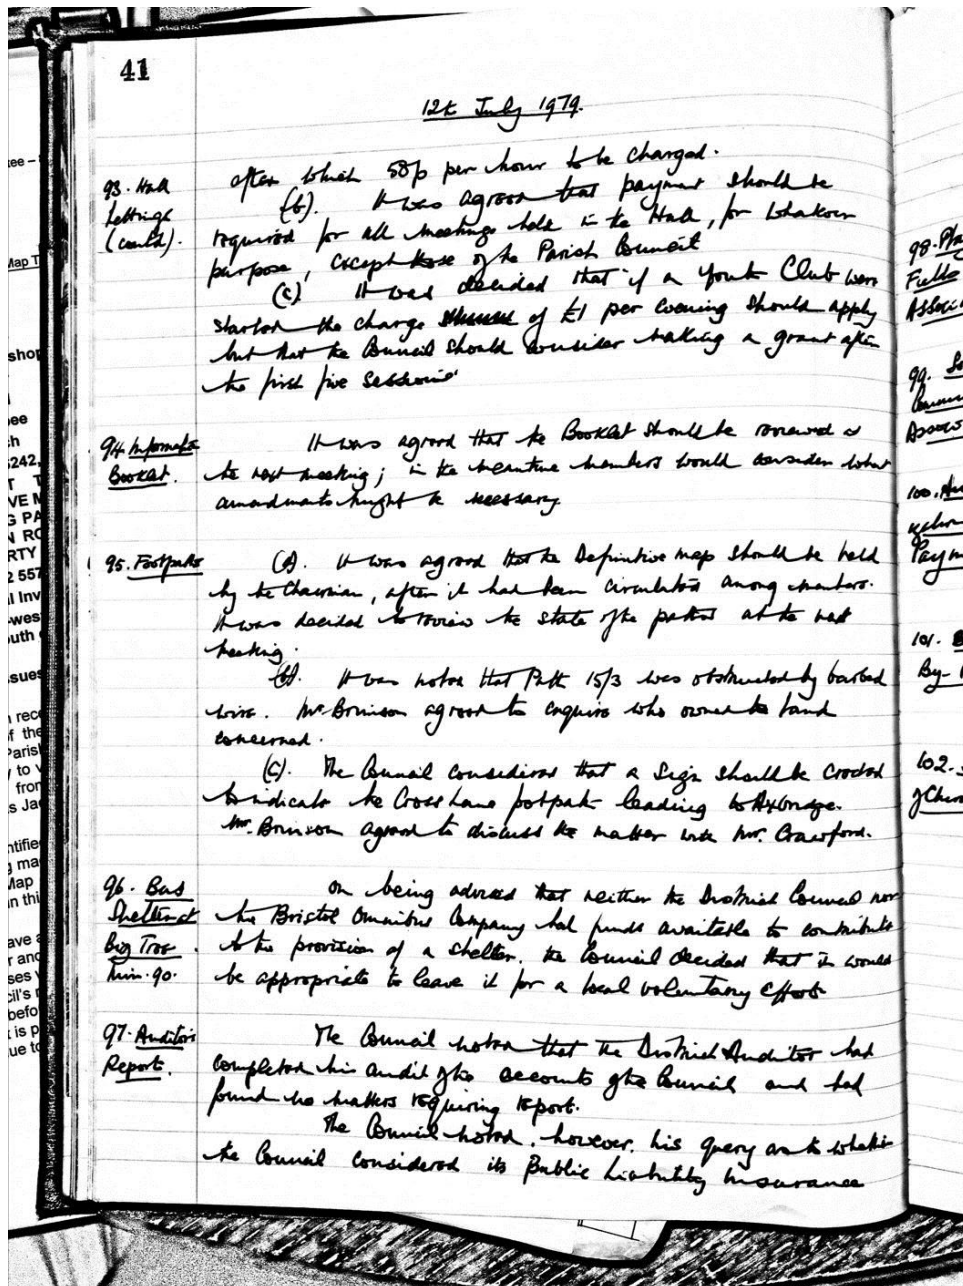 41
12th July 1979.
93. Hall
Lettings
(contd).
after which 50p per hour to be charged.
(b). It was agreed that payment should be
required for all meetings held in the Hall, for whatever
purpose, except those of the Parish Council
(c) It was decided that if a Youth Club were
started the charge of £1 per evening should apply
but that the Council should consider making a grant after
the first five sessions
94 Information
Booklet.
It was agreed that the Booklet should be reviewed at
the next meeting; in the meantime members would consider what
amendments might be necessary
95. Footpaths
(a). It was agreed that the Definitive map should be held
by the Chairman, after it had been circulated among members.
It was decided to review the state of the paths at the next
meeting.
(b). It was noted that Path 15/3 was obstructed by barbed
wire. Mr. Brinson agreed to enquire who owned the land
concerned.
(c). The Council considered that a Sign should be erected
to indicate the Cross Lane footpath leading to Axbridge.
Mr. Brinson agreed to discuss the matter with Mr. Crawford.
96. Bus
Shelter at
Big Tree.
Min. 90.
On being advised that neither the District Council nor
the Bristol Omnibus Company had funds available to contribute
to the provision of a shelter, the Council decided that it would
be appropriate to leave it for a local voluntary effort
97. Auditor's
Report.
The Council noted that the District Auditor had
completed his audit of the accounts of the Council and had
found no matters requiring report.
The Council noted, however, his query as to whether
the Council considered its Public Liability Insurance
98.
99.
100.
101.
By-
102.